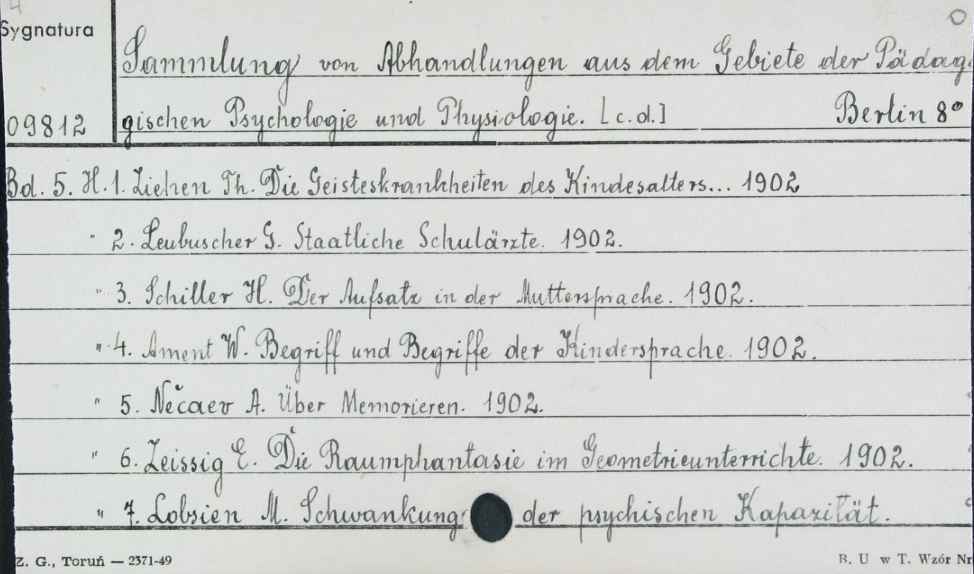 4
Sygnatura
Sammlung von Abhandlungen aus dem Gebiete der Pädag
09812 gischen Psychologie und Physiologie. [c.d.] Berlin 8°
Bd. 5. H.1. Ziehen Th. Die Geisteskrankheiten des Kindesalters... 1902
" 2. Leubuscher G. Staatliche Schulärzte. 1902.
" 3. Schiller H. Der Aufsatz in der Muttersprache. 1902.
" 4. Ament W. Begriff und Begriffe der Kindersprache. 1902.
" 5. Nečaev A. Über Memorieren. 1902.
" 6. Zeissig E. Die Raumphantasie im Geometrieunterrichte. 1902.
" 7. Lobsien M. Schwankung der psychischen Kapazität.
Z. G., Toruń — 2371-49 B. U w T. Wzór Nr